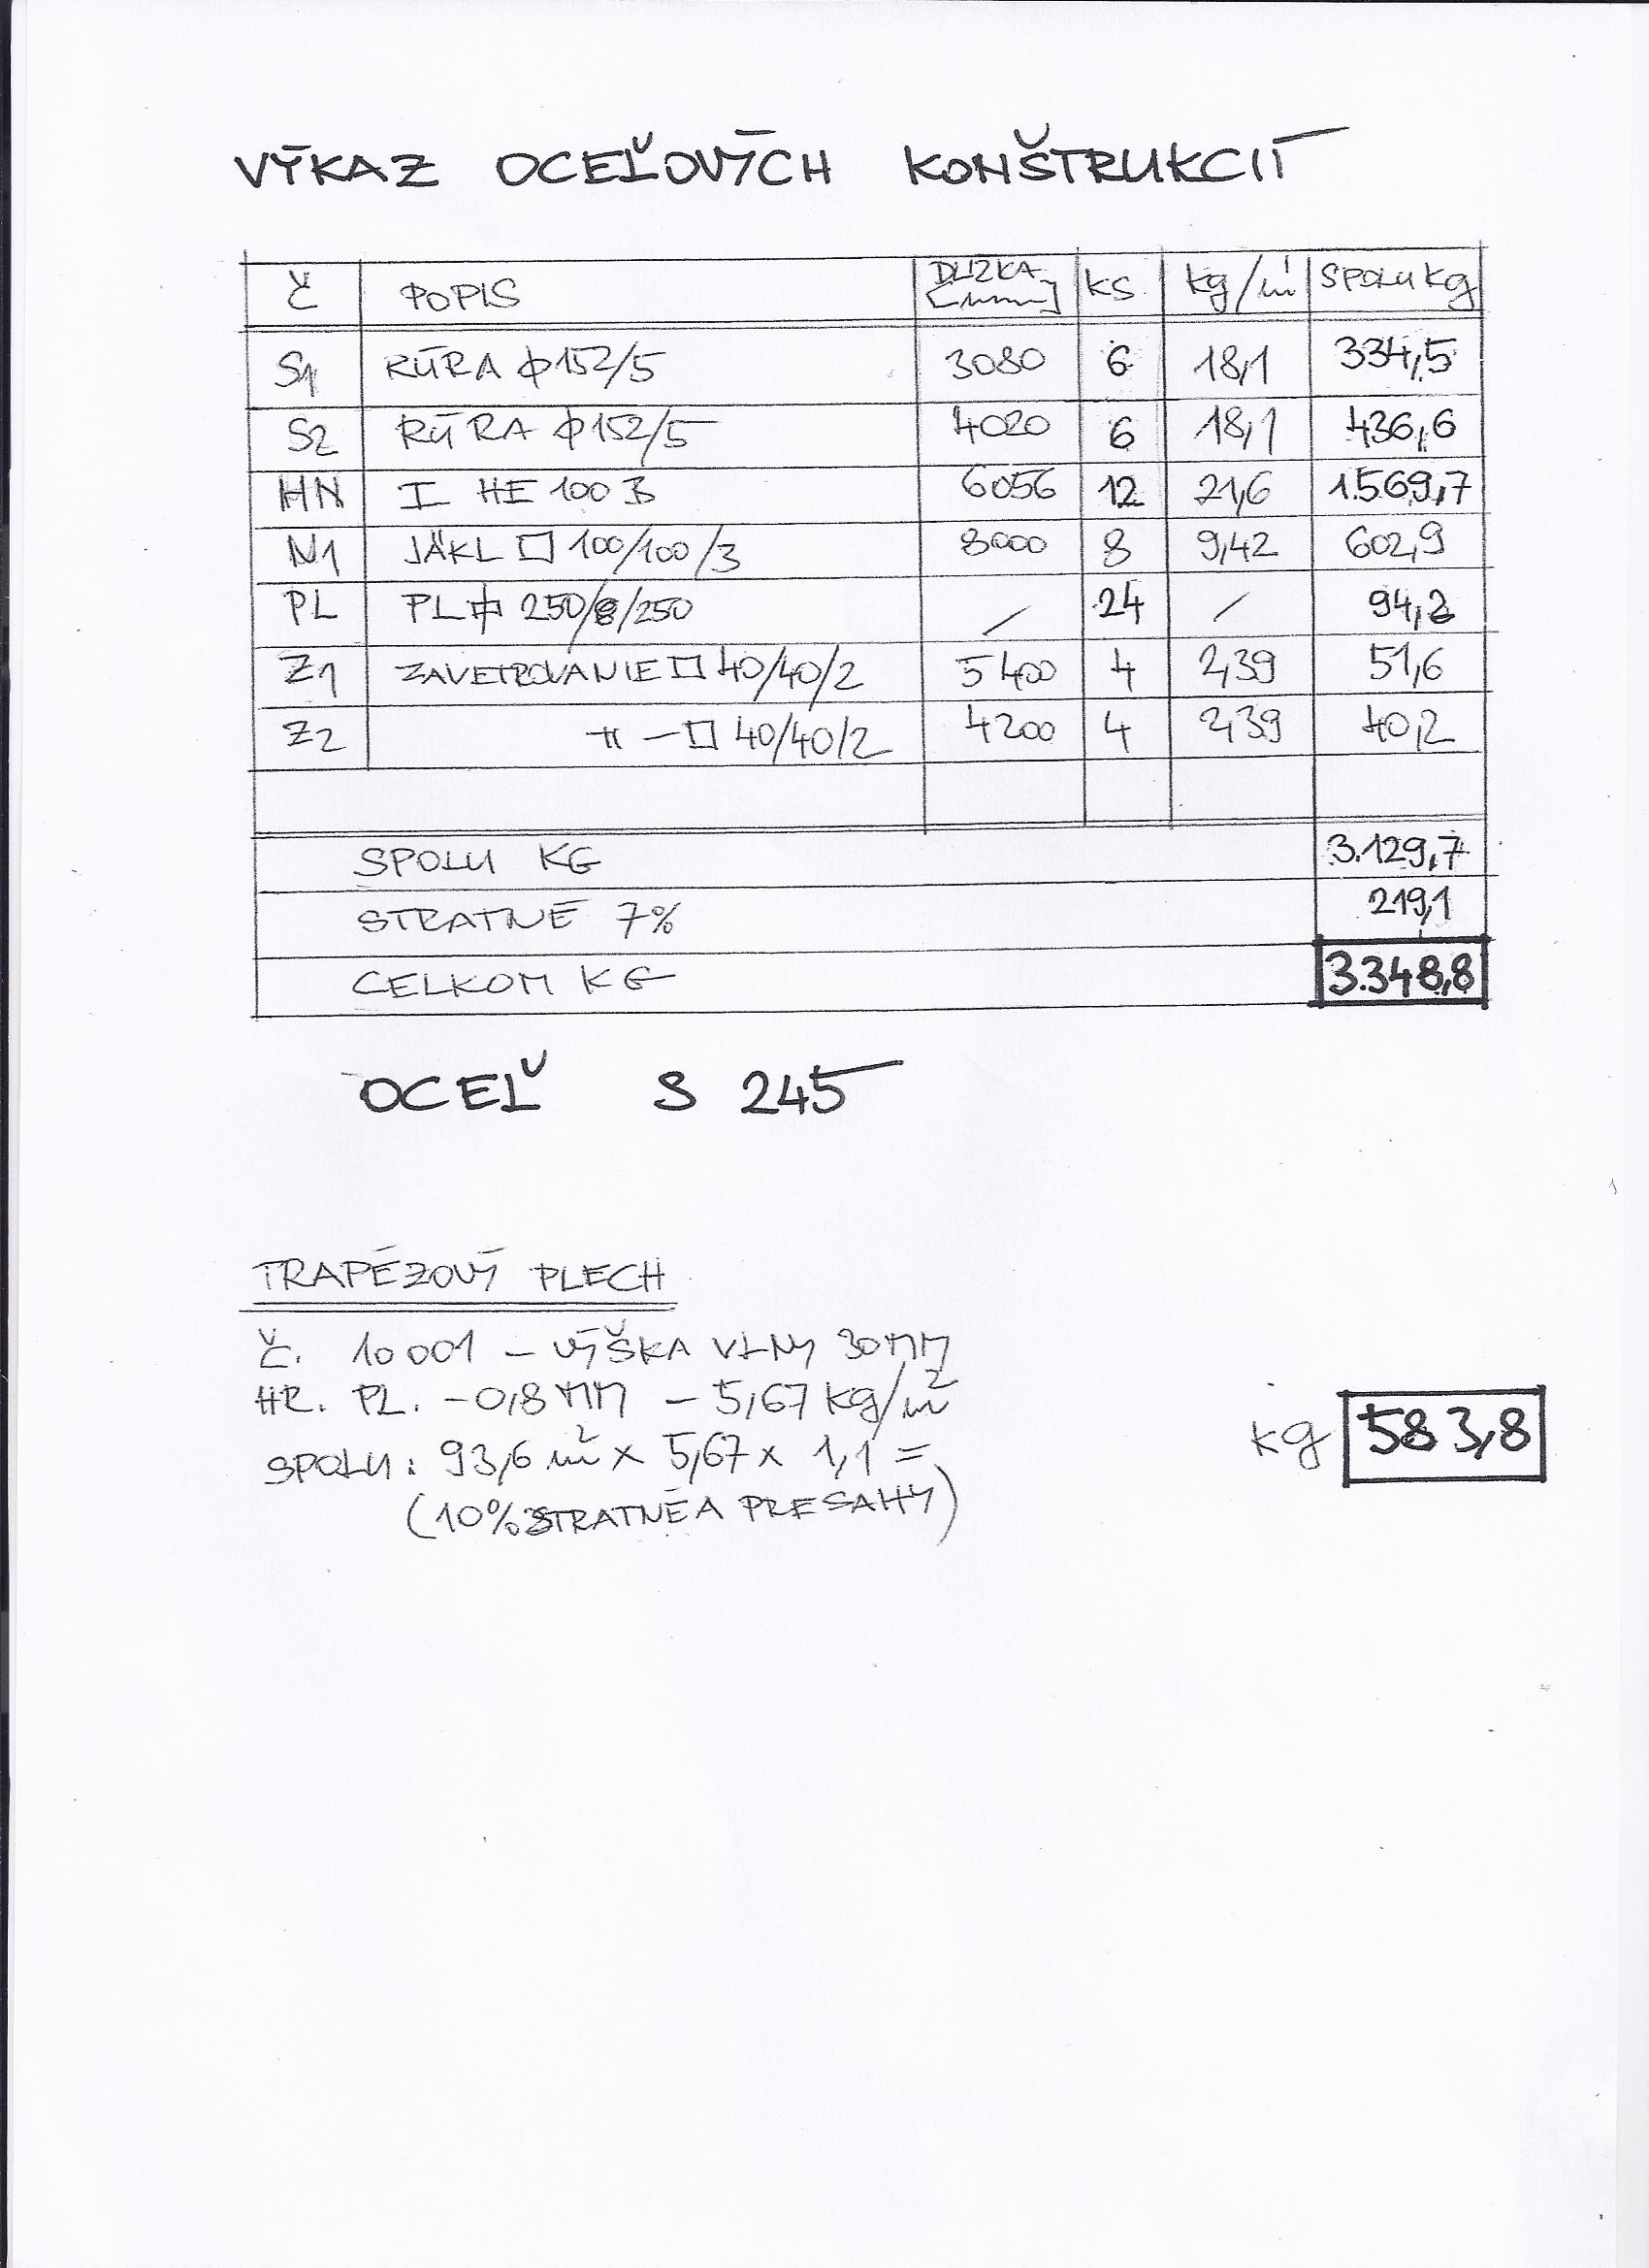 VÝKAZ OCEĽOVÝCH KONŠTRUKCIÍ
Č POPIS DĹŽKA [mm] KS kg/m' SPOLU kg
S1 RÚRA ϕ152/5 3080 6 18,1 334,5
S2 RÚRA ϕ152/5 4020 6 18,1 436,6
HN I HE 100 B 6056 12 21,6 1.569,7
N1 JÄKL □ 100/100/3 8000 8 9,42 602,9
PL PL 250/8/250 / 24 / 94,2
Z1 ZAVETROVANIE □ 40/40/2 5400 4 2,39 51,6
Z2 -"- □ 40/40/2 4200 4 2,39 40,2
SPOLU KG 3.129,7
STRATNÉ 7% 219,1
CELKOM KG 3.348,8
OCEĽ S 245
TRAPÉZOVÝ PLECH
Č. 10001 - VÝŠKA VLNY 30MM
HR. PL. - 0,8MM - 5,67 kg/m²
SPOLU: 93,6 m² x 5,67 x 1,1 = kg 583,8
(10% STRATNÉ A PRESAHY)